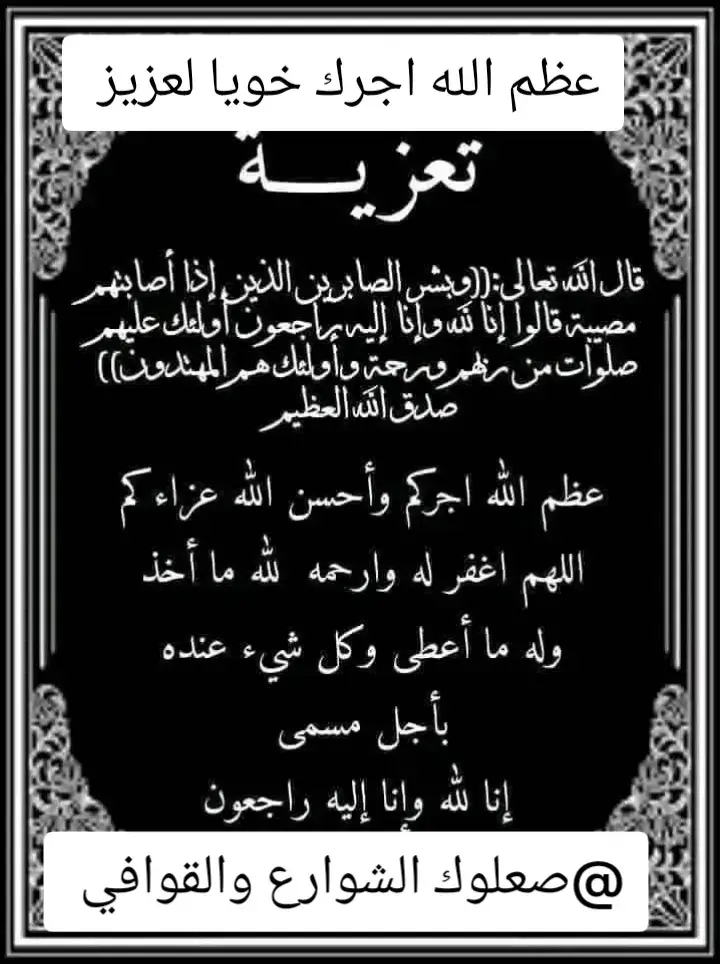 عظم الله اجرك خويا لعزيز
تعزيـــة
قال الله تعالى:((وبشر الصابرين الذين إذا أصابتهم
مصيبة قالوا إنا لله وإنا إليه راجعون أولئك عليهم
صلوات من ربهم ورحمة وأولئك هم المهتدون))
صدق الله العظيم
عظم الله اجركم وأحسن الله عزاءكم
اللهم اغفر له وارحمه لله ما أخذ
وله ما أعطى وكل شيء عنده
بأجل مسمى
إنا لله وإنا إليه راجعون
@صعلوك الشوارع والقوافي